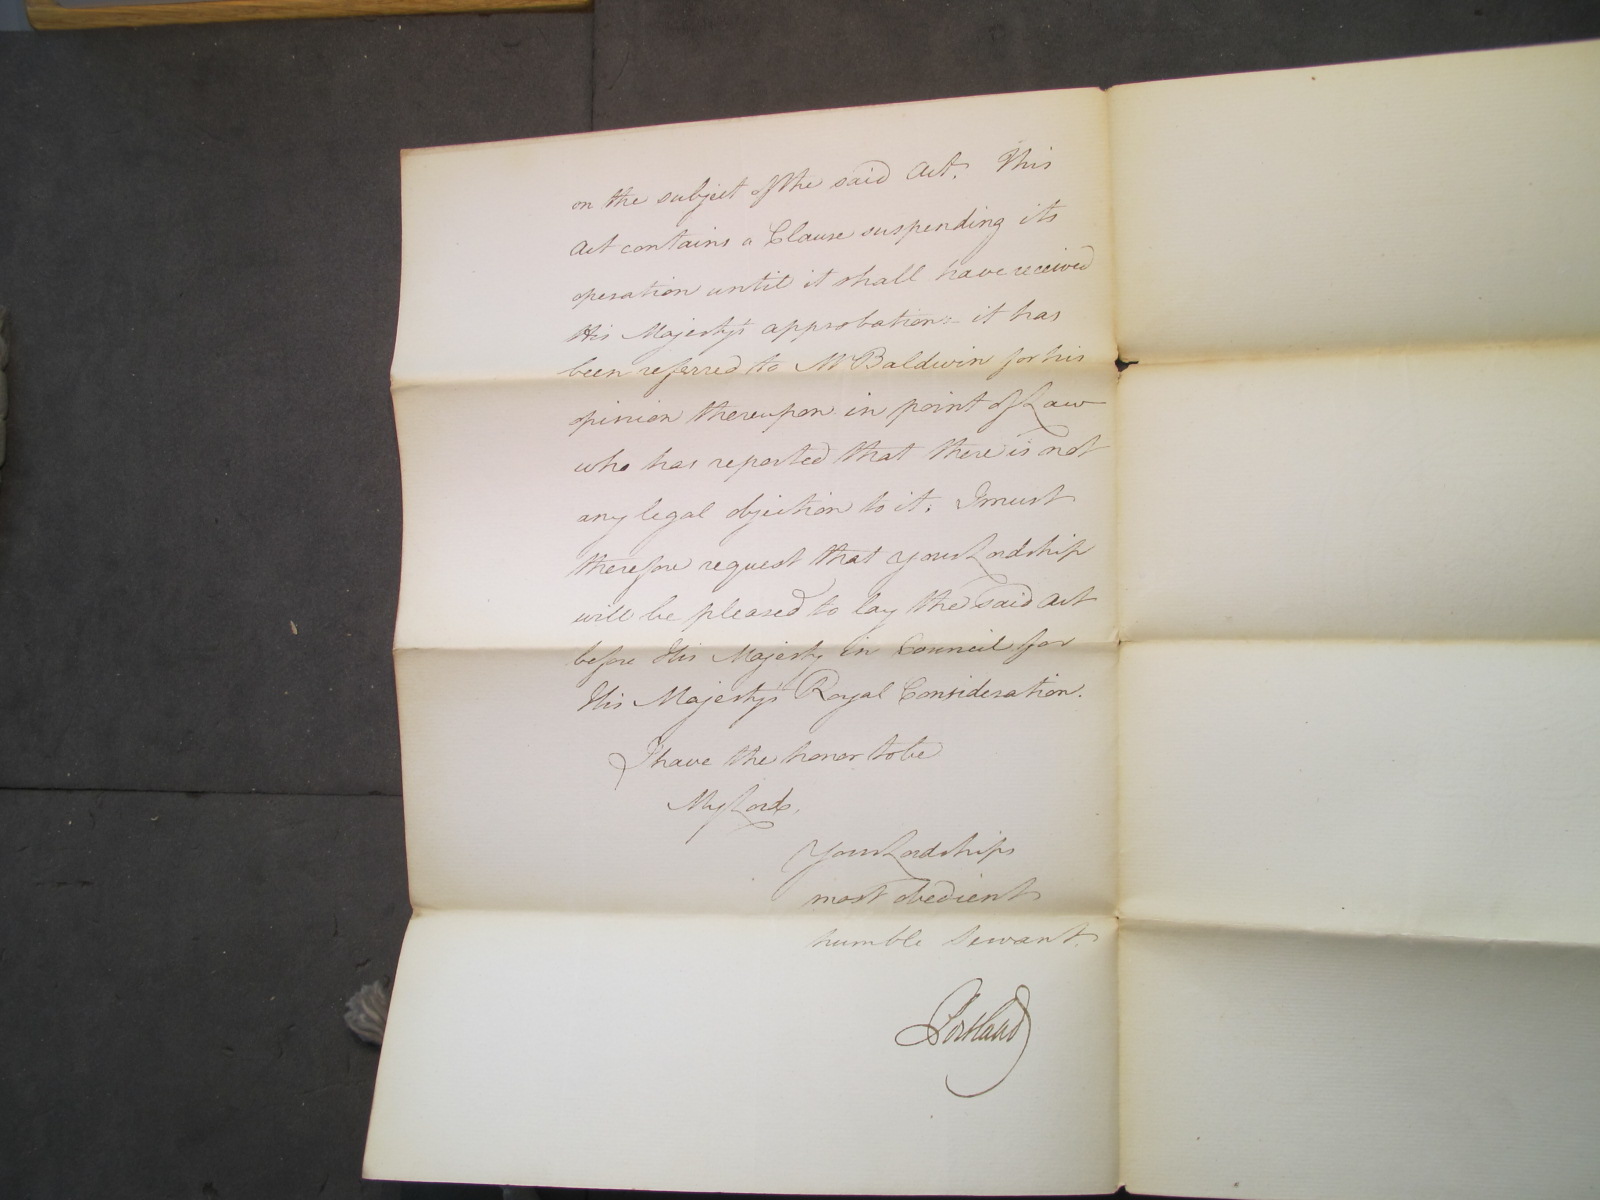 on the subject of the said Act. This
Act contains a Clause suspending its
operation until it shall have received
His Majesty's approbation:- it has
been referred to Mr Baldwin for his
opinion thereupon in point of Law
who has reported that there is not
any legal objection to it. I must
therefore request that your Lordship
will be pleased to lay the said Act
before His Majesty in Council for
His Majesty's Royal Consideration.
I have the honor to be
My Lords,
Your Lordships
most obedient
humble Servant.
Portland